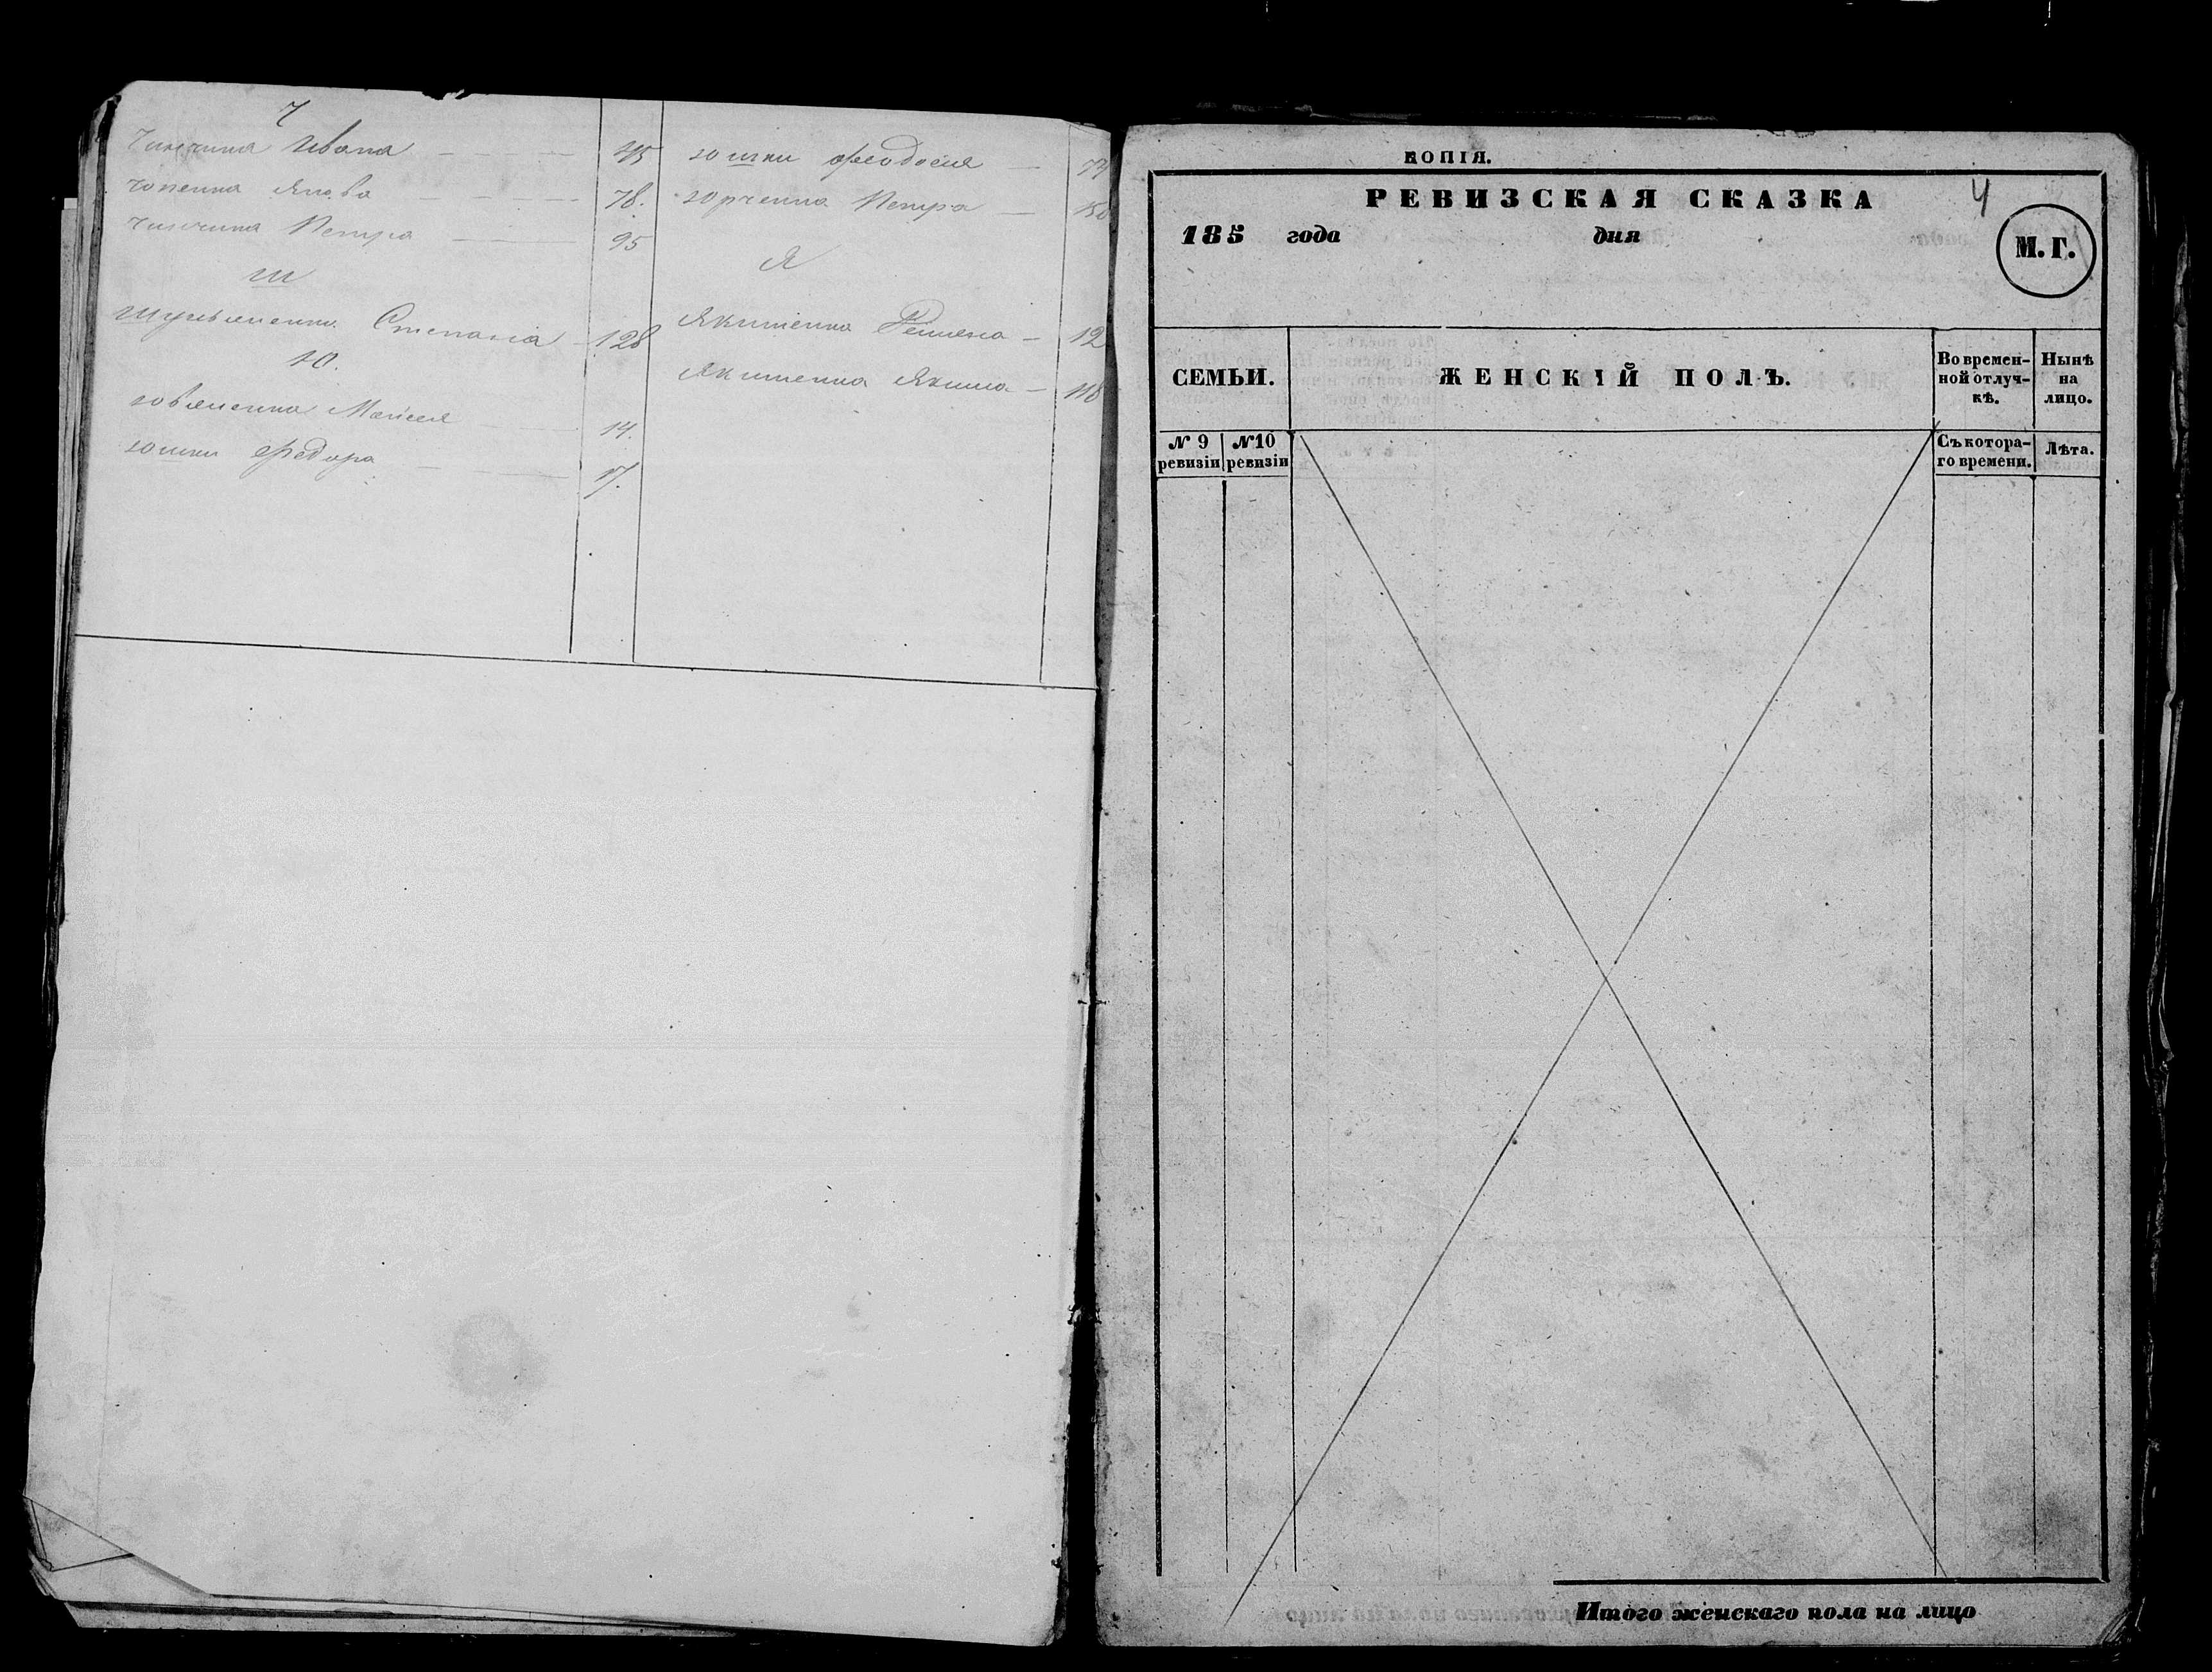 Ч
Ивана 45
Якова 78.
Петра 95
Ш
Степана 128
Ю.
Моисея 14.
Юшки Федора 17.
Юшки Феодосия 77
Юрченка Петра 150
Я
Якименка 12
Якименка Якима 118
КОПІЯ.
РЕВИЗСКАЯ СКАЗКА
4
185 года дня
М. Г.
СЕМЬИ.
ЖЕНСКІЙ ПОЛЪ.
Во времен-
ной отлуч-
кѣ.
Нынѣ
на
лицо.
№ 9
ревизіи
№10
ревизіи
Съ котора-
го времени.
Лѣта.
Итого женскаго пола на лицо